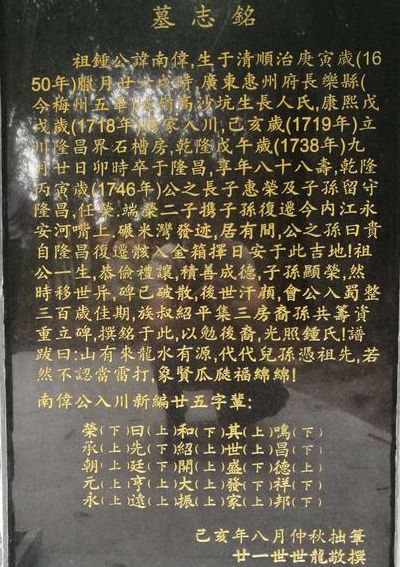 墓志銘
祖鍾公諱南偉,生于清順治庚寅歲(16
50年)臘月廿六戌時,廣東惠州府長樂縣(
今梅州五華)烏沙坑生長人氏,康熙戊
戌歲(1718年)家入川,己亥歲(1719年)立
川隆昌界石槽房,乾隆戊午歲(1738年)九
月廿日卯時卒于隆昌,享年八十八壽,乾隆
丙寅歲(1746年)公之長子惠榮及子孫留守
隆昌,任榮,端榮二子携子孫復遷今内江永
安河嘴上,碾米灣發迹,居有間,公之孫曰貴
自隆昌復遷骸入金箱擇日安于此吉地!祖
公一生,恭儉禮讓,積善成德,子孫顯榮,然
時移世异,碑已破散,後世汗顔,會公入蜀整
三百歲佳期,族叔紹平集三房裔孫共籌資
重立碑,撰銘于此,以勉後裔,光照鍾氏!譜
跋曰:山有來龍水有源,代代兒孫憑祖先,若
然不認當雷打,象賢瓜瓞福綿綿!
南偉公入川新編廿五字輩:
榮(下)曰(上)和(下)其(上)鳴(下)
承(上)先(下)紹(上)世(上)昌(下)
朝(上)廷(下)開(上)盛(下)德(上)
元(上)亨(上)大(上)發(下)祥(下)
永(上)遠(上)振(上)家(上)邦(下)
己亥年八月仲秋拙筆
廿一世世龍敬撰